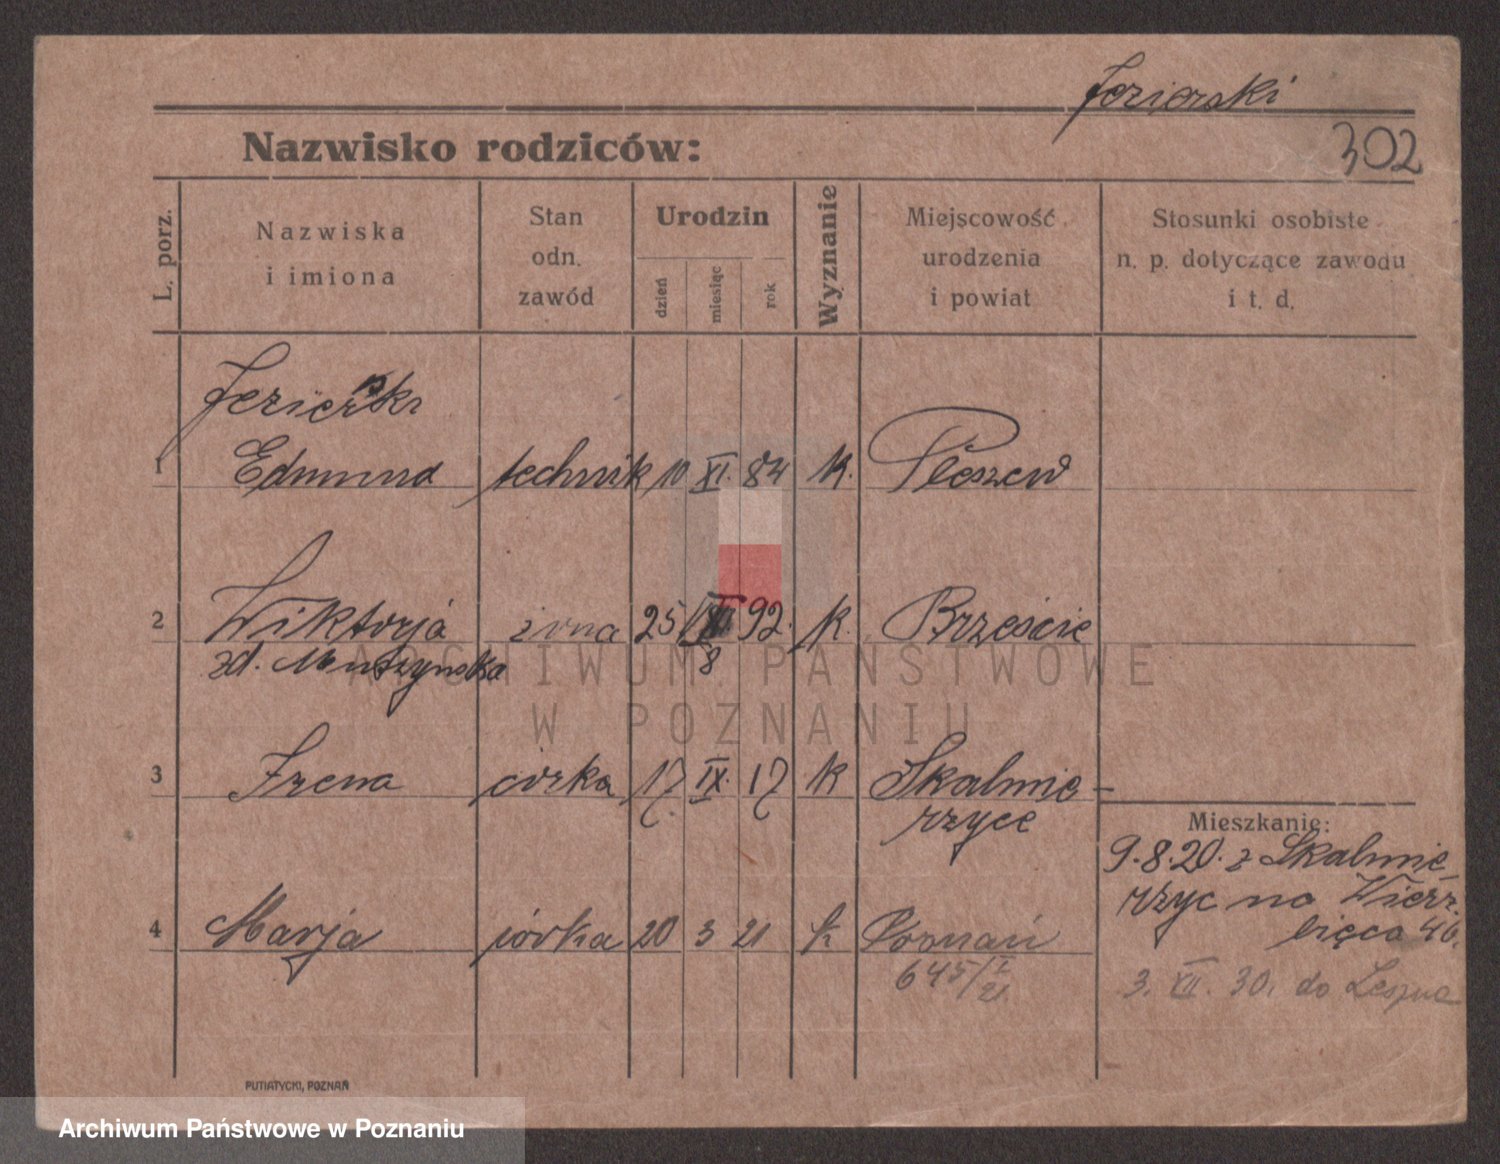 Jezierski
Nazwisko rodziców:
302
L. porz.
Nazwiska
i imiona
Stan
odn.
zawód
Urodzin
dzień
miesiąc
rok
Wyznanie
Miejscowość
urodzenia
i powiat
Stosunki osobiste
n. p. dotyczące zawodu
i t. d.
Jezierski
1 Edmund technik 10 XI. 84 k. Pleszew
2 Wiktorja żona 25 92. k. Brzeście
zd. Muszyńska 8
3 Irena córka 17 IX. 17 k Skalmie-
rzyce
Mieszkanie:
9.8.20. z Skalmie-
rzyc na Wierz-
bięca 46.
4 Marja córka 20 3 21 k Poznań
645/I
21
3. XII. 30. do Leszna
ARCHIWUM PAŃSTWOWE
W POZNANIU
PUTIATYCKI, POZNAŃ
Archiwum Państwowe w Poznaniu